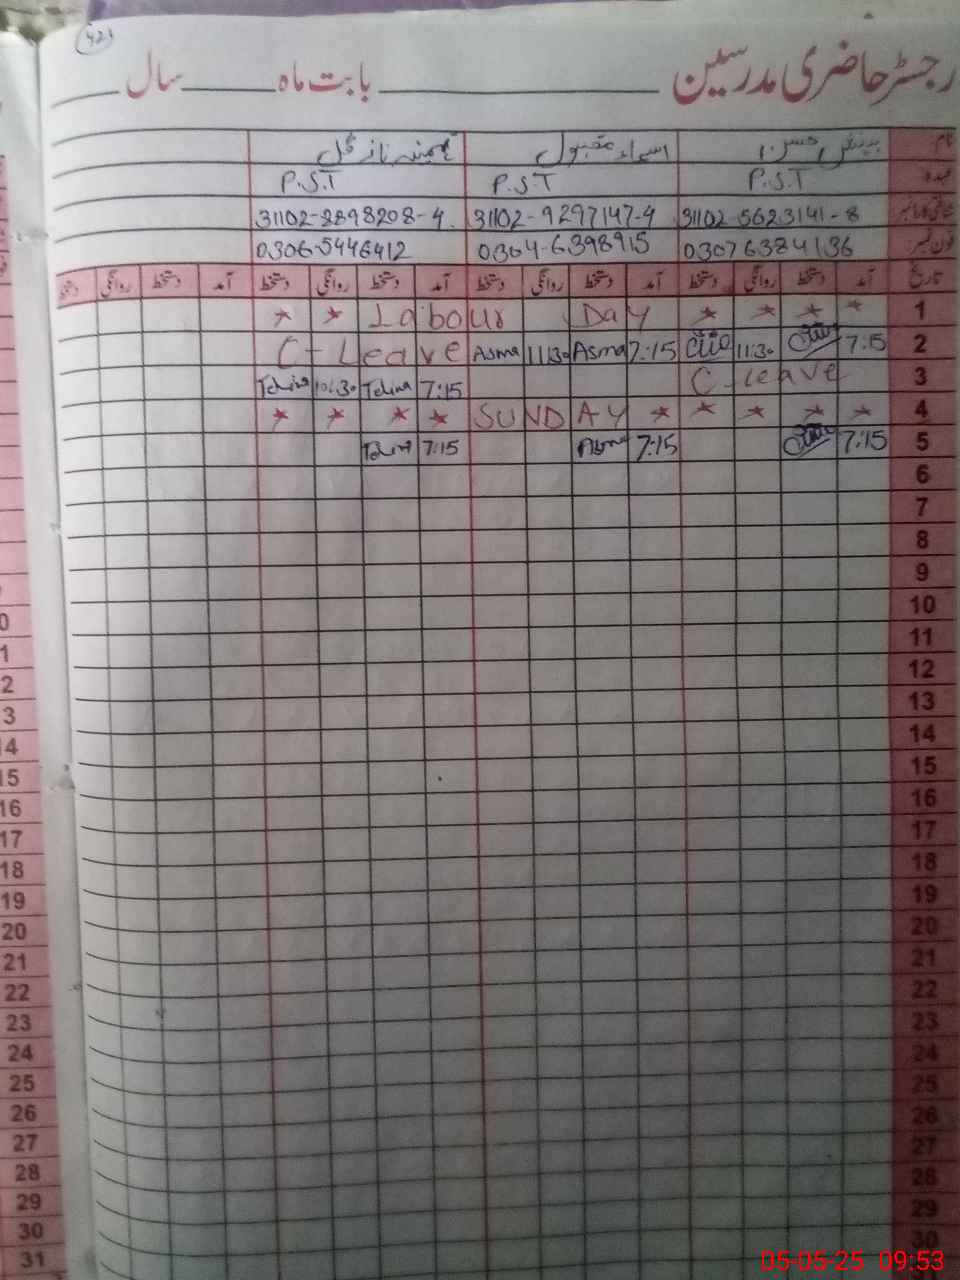 421
رجسٹر حاضری مدرسین بابت ماہ سال
نام بینش حسن اسماء مقبول تہمینہ ناز گل
عہدہ P.S.T P.S.T P.S.T
شناختی کارڈ نمبر 31102-5623141-8 31102-9297147-4 31102-2898208-4
فون نمبر 03076384136 0304-6398915 0306-5446412
تاریخ آمد دستخط روانگی دستخط آمد دستخط روانگی دستخط آمد دستخط روانگی دستخط آمد دستخط روانگی دستخط
1 Labour Day
2 7:15 11:30 7:15 Asma 11:30 Asma C-Leave
3 C-leave 7:15
4 SUNDAY
5 7:15 7:15 Asma 7:15
6
7
8
9
10
11
12
13
14
15
16
17
18
19
20
21
22
23
24
25
26
27
28
29
30
0
1
2
3
14
15
16
17
18
19
20
21
22
23
24
25
26
27
28
29
30
31
05-05-25 09:53